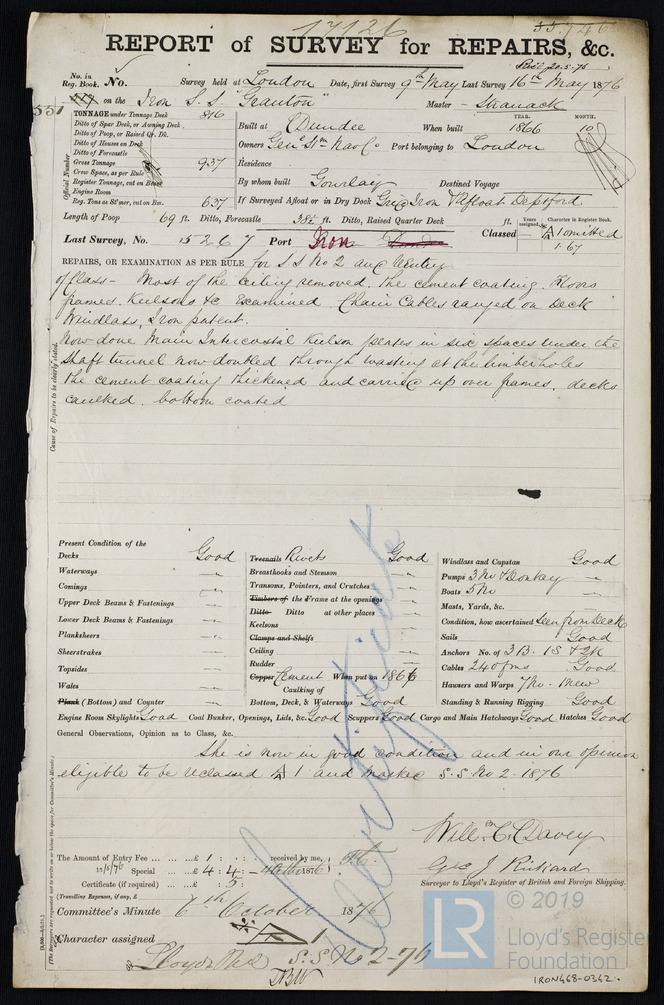 17126
55746
REPORT of SURVEY for REPAIRS, &c.
Rec'd 20.5.76
No. in Reg. Book. No. Survey held at London Date, first Survey 9th May Last Survey 16th May 1876
551 on the Iron S.S. "Granton" Master Shanack
TONNAGE under Tonnage Deck 816
Ditto of Spar Deck, or Awning Deck
Ditto of Poop, or Raised Qr. Dk.
Ditto of Houses on Deck
Ditto of Forecastle
Gross Tonnage 937
Crew Space, as per Rule
Register Tonnage, cut on Beam
Engine Room
Reg. Tons as Steamer, cut on Bm. 637
Official Number
YEAR. MONTH.
Built at Dundee When built 1866 10
Owners Genl Stm Nav Co Port belonging to London
Residence
By whom built Gourlay Destined Voyage
If Surveyed Afloat or in Dry Dock Grid Iron & Afloat Deptford
Length of Poop 69 ft. Ditto, Forecastle 38½ ft. Ditto, Raised Quarter Deck ft.
Years assigned. Character in Register Book.
Last Survey, No. 15267 Port Iron Classed A 1 omitted
1.67
REPAIRS, OR EXAMINATION AS PER RULE for S S No 2 and Reentry
of class - Most of the ceiling removed. The cement coating. Floors
frames. Keelsons &c Examined. Chain Cables ranged on Deck
Windlass, Iron patent.
Now done Main Intercostal Keelson plates in six spaces under the
shaft tunnel now doubled through wasting at the limberholes
the cement coating thickened and carried up over frames, decks
caulked. bottom coated
Cause of Repairs to be clearly stated.
Present Condition of the
Decks Good
Waterways
Comings
Upper Deck Beams & Fastenings
Lower Deck Beams & Fastenings
Planksheers
Sheerstrakes
Topsides
Wales
Plank (Bottom) and Counter
Treenails Rivets Good
Breasthooks and Stemson
Transoms, Pointers, and Crutches
Timbers of the Frame at the openings
Ditto Ditto at other places
Keelsons
Clamps and Shelfs
Ceiling
Rudder
Copper Cement When put on 1866
Caulking of
Bottom, Deck, & Waterways Good
Windlass and Capstan Good
Pumps 3 No & Donkey
Boats 5 No
Masts, Yards, &c.
Condition, how ascertained Seen from Deck
Sails Good
Anchors No. of 3B. 1S & 2K
Cables 240 fms Good
Hawsers and Warps 7 No. New
Standing & Running Rigging Good
Engine Room Skylights Good Coal Bunker, Openings, Lids, &c. Good Scuppers Good Cargo and Main Hatchways Good Hatches Good
General Observations, Opinion as to Class, &c.
She is now in good condition and in our opinion
eligible to be reclassed A 1 and marked S.S. No 2-1876
Certificate
Will. C. Davey
Geo J Rickard
Surveyor to Lloyd's Register of British and Foreign Shipping.
The Amount of Entry Fee ... ... £ 1 : : received by me,
Special ... £ 4 : 4 : 1876
Certificate (if required) .. : 5
(Travelling Expenses, if any, £
Committee's Minute 6th October 1876
Character assigned A 1
Lloyds S.S. No 2-76
© 2019
LR
Lloyd's Register
Foundation
IRON468-0342